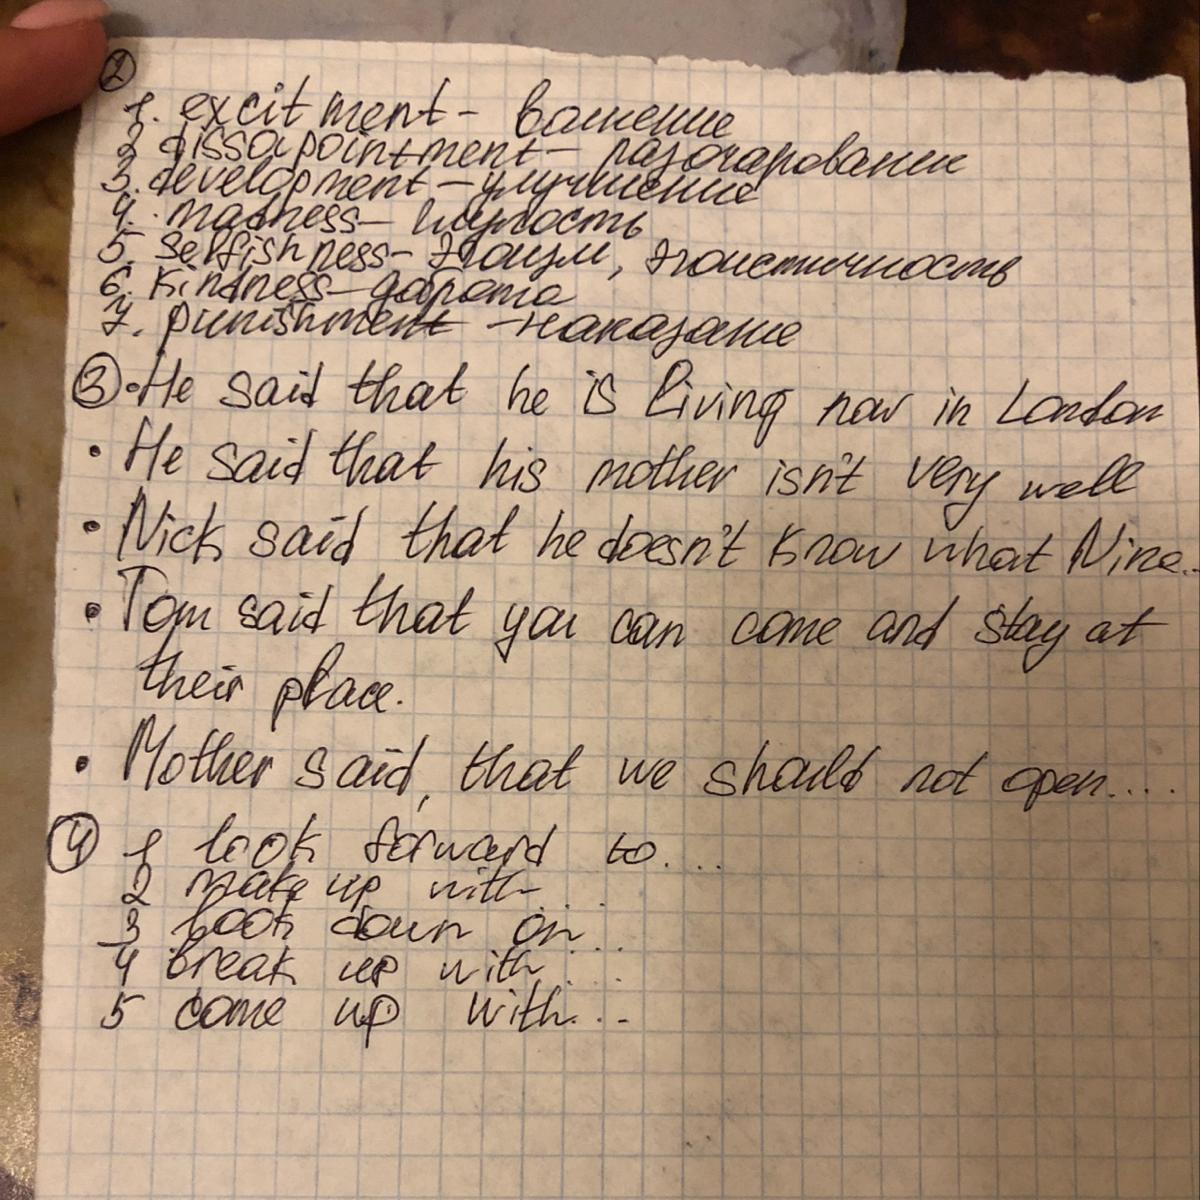 ②
1. excitment - вашение
2 dissapointment - разочарование
3. development - улучшение
4. madness - глупость
5. selfishness - эгоизм, эгоистичность
6. kindness - дарота
7. punishment - наказание
③ • He said that he is living now in London
• He said that his mother isn't very well
• Nick said that he doesn't know what Nina..
• Tom said that you can come and stay at
their place.
• Mother said, that we should not open....
④ 1 look forward to....
2 make up with...
3 look down on...
4 break up with....
5 come up with...